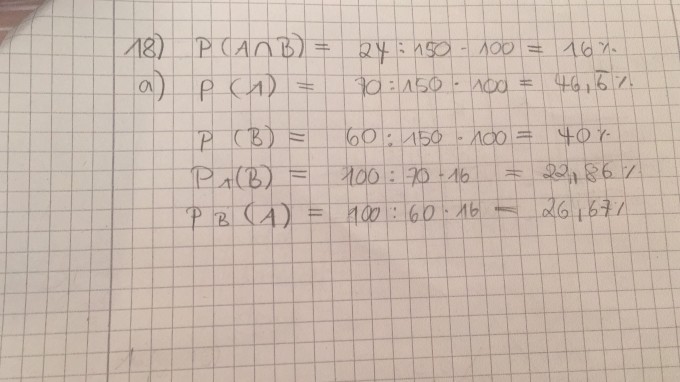 18) P(A∩B) = 24 : 150 · 100 = 16%
a) P(A) = 70 : 150 · 100 = 46,6̅%
P(B) = 60 : 150 · 100 = 40%
P_A(B) = 100 : 70 · 16 = 22,86%
P_B(A) = 100 : 60 · 16 = 26,67%